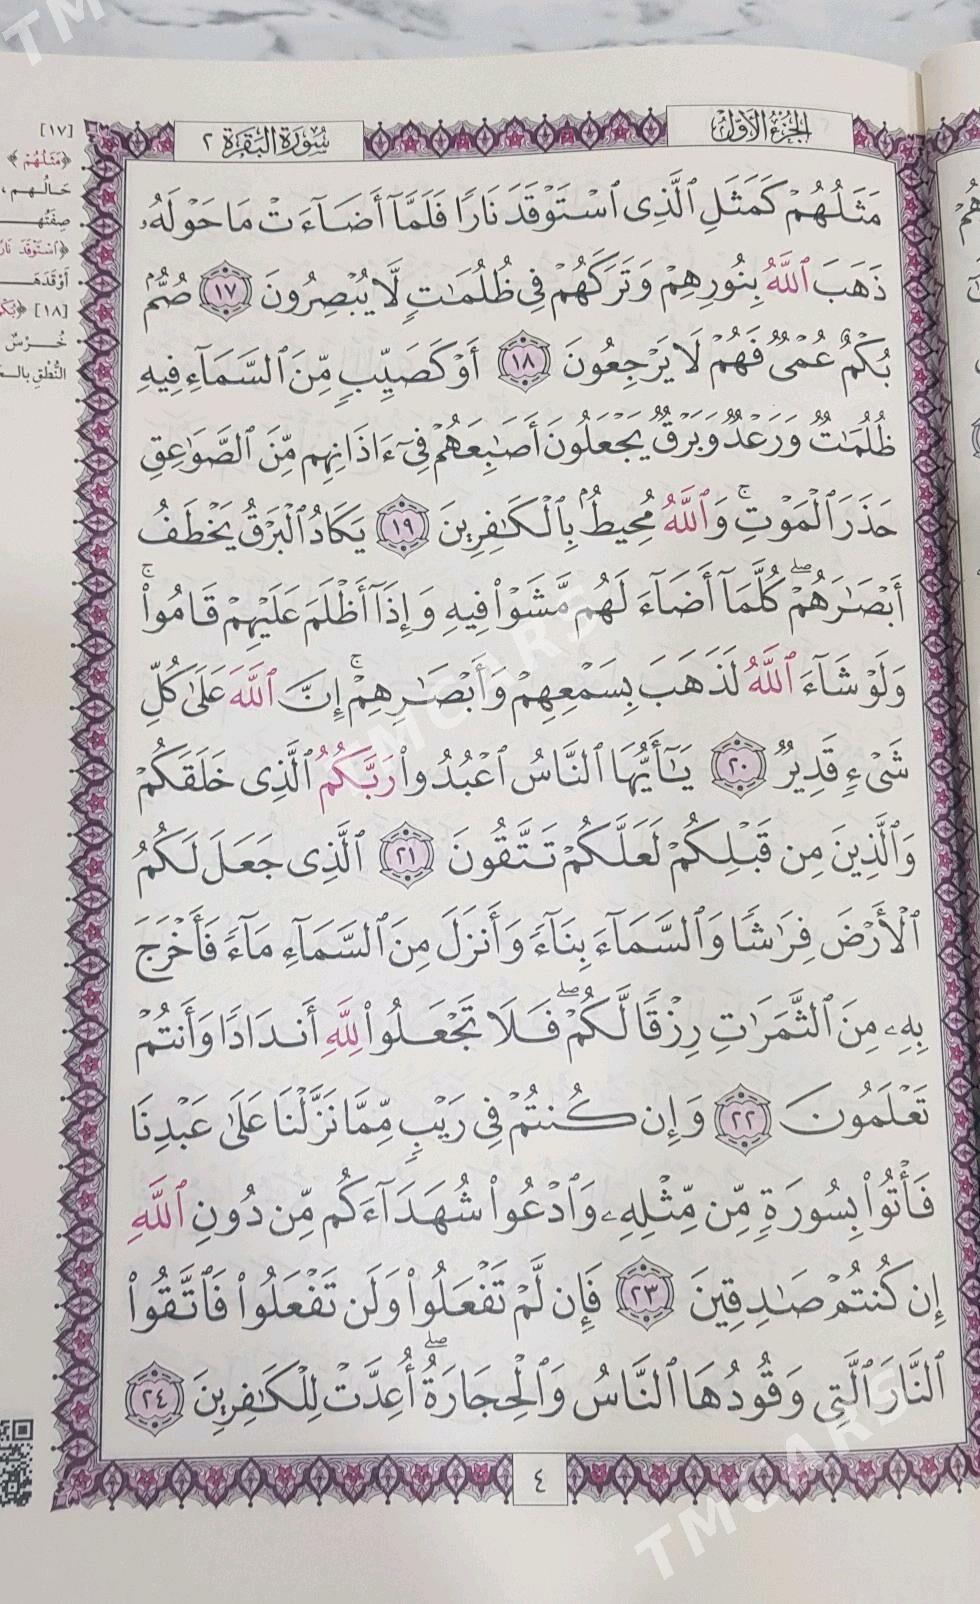 الجزء الأول
سورة البقرة ٢
مَثَلُهُمْ كَمَثَلِ ٱلَّذِى ٱسْتَوْقَدَ نَارًا فَلَمَّآ أَضَآءَتْ مَا حَوْلَهُۥ
ذَهَبَ ٱللَّهُ بِنُورِهِمْ وَتَرَكَهُمْ فِى ظُلُمَٰتٍ لَّا يُبْصِرُونَ ١٧ صُمٌّۢ
بُكْمٌ عُمْىٌ فَهُمْ لَا يَرْجِعُونَ ١٨ أَوْ كَصَيِّبٍ مِّنَ ٱلسَّمَآءِ فِيهِ
ظُلُمَٰتٌ وَرَعْدٌ وَبَرْقٌ يَجْعَلُونَ أَصَٰبِعَهُمْ فِىٓ ءَاذَانِهِم مِّنَ ٱلصَّوَٰعِقِ
حَذَرَ ٱلْمَوْتِ ۚ وَٱللَّهُ مُحِيطٌۢ بِٱلْكَٰفِرِينَ ١٩ يَكَادُ ٱلْبَرْقُ يَخْطَفُ
أَبْصَٰرَهُمْ ۖ كُلَّمَآ أَضَآءَ لَهُم مَّشَوْا۟ فِيهِ وَإِذَآ أَظْلَمَ عَلَيْهِمْ قَامُوا۟ ۚ
وَلَوْ شَآءَ ٱللَّهُ لَذَهَبَ بِسَمْعِهِمْ وَأَبْصَٰرِهِمْ ۚ إِنَّ ٱللَّهَ عَلَىٰ كُلِّ
شَىْءٍ قَدِيرٌ ٢٠ يَٰٓأَيُّهَا ٱلنَّاسُ ٱعْبُدُوا۟ رَبَّكُمُ ٱلَّذِى خَلَقَكُمْ
وَٱلَّذِينَ مِن قَبْلِكُمْ لَعَلَّكُمْ تَتَّقُونَ ٢١ ٱلَّذِى جَعَلَ لَكُمُ
ٱلْأَرْضَ فِرَٰشًا وَٱلسَّمَآءَ بِنَآءً وَأَنزَلَ مِنَ ٱلسَّمَآءِ مَآءً فَأَخْرَجَ
بِهِۦ مِنَ ٱلثَّمَرَٰتِ رِزْقًا لَّكُمْ ۖ فَلَا تَجْعَلُوا۟ لِلَّهِ أَندَادًا وَأَنتُمْ
تَعْلَمُونَ ٢٢ وَإِن كُنتُمْ فِى رَيْبٍ مِّمَّا نَزَّلْنَا عَلَىٰ عَبْدِنَا
فَأْتُوا۟ بِسُورَةٍ مِّن مِّثْلِهِۦ وَٱدْعُوا۟ شُهَدَآءَكُم مِّن دُونِ ٱللَّهِ
إِن كُنتُمْ صَٰدِقِينَ ٢٣ فَإِن لَّمْ تَفْعَلُوا۟ وَلَن تَفْعَلُوا۟ فَٱتَّقُوا۟
ٱلنَّارَ ٱلَّتِى وَقُودُهَا ٱلنَّاسُ وَٱلْحِجَارَةُ ۖ أُعِدَّتْ لِلْكَٰفِرِينَ ٢٤
٤
[١٧]
﴿مَثَلُهُمْ﴾
حَالُهم،
﴿ٱسْتَوْقَدَ
[١٨]
خُرْسٌ
النُّطْقِ
TMCARS
TMCARS